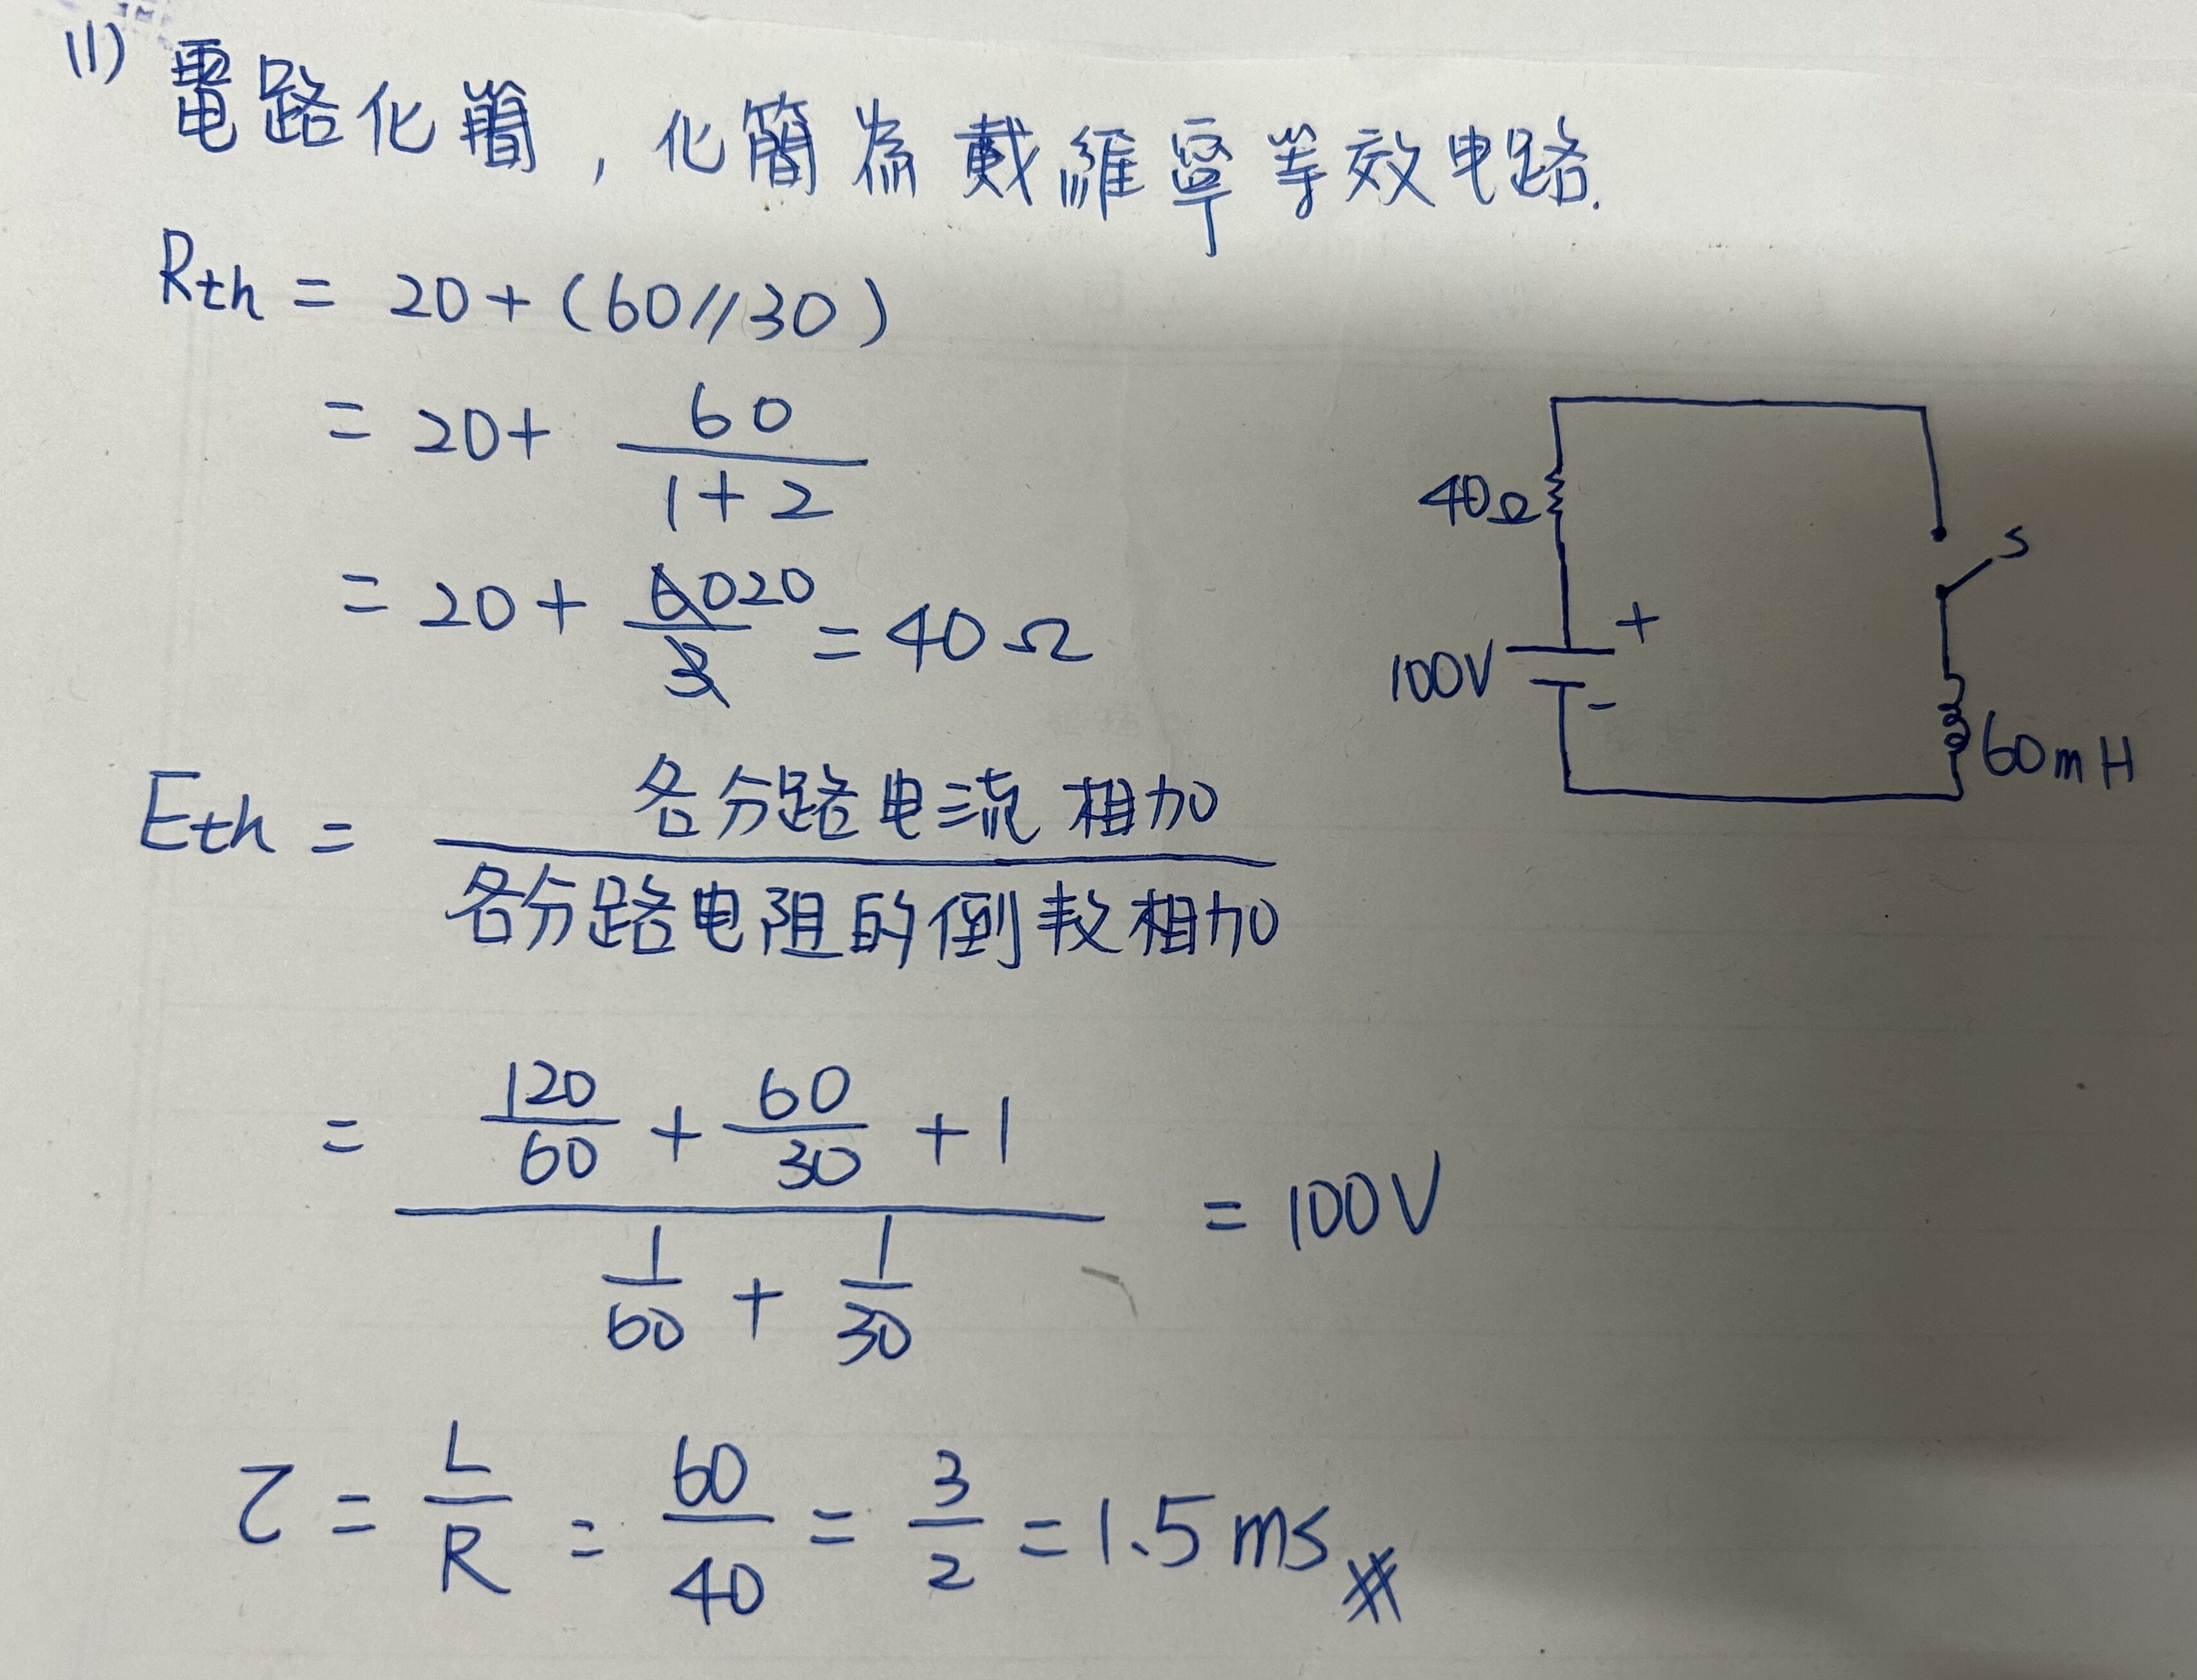 (1) 電路化簡, 化簡為戴維寧等效电路.
Rth = 20 + (60//30)
= 20 + 60/(1+2)
= 20 + 60/3 20 = 40Ω
40Ω
S
100V
+
-
60mH
Eth = 各分路电流相加/各分路电阻的倒数相加
= (120/60 + 60/30 + 1)/(1/60 + 1/30) = 100V
τ = L/R = 60/40 = 3/2 = 1.5ms #